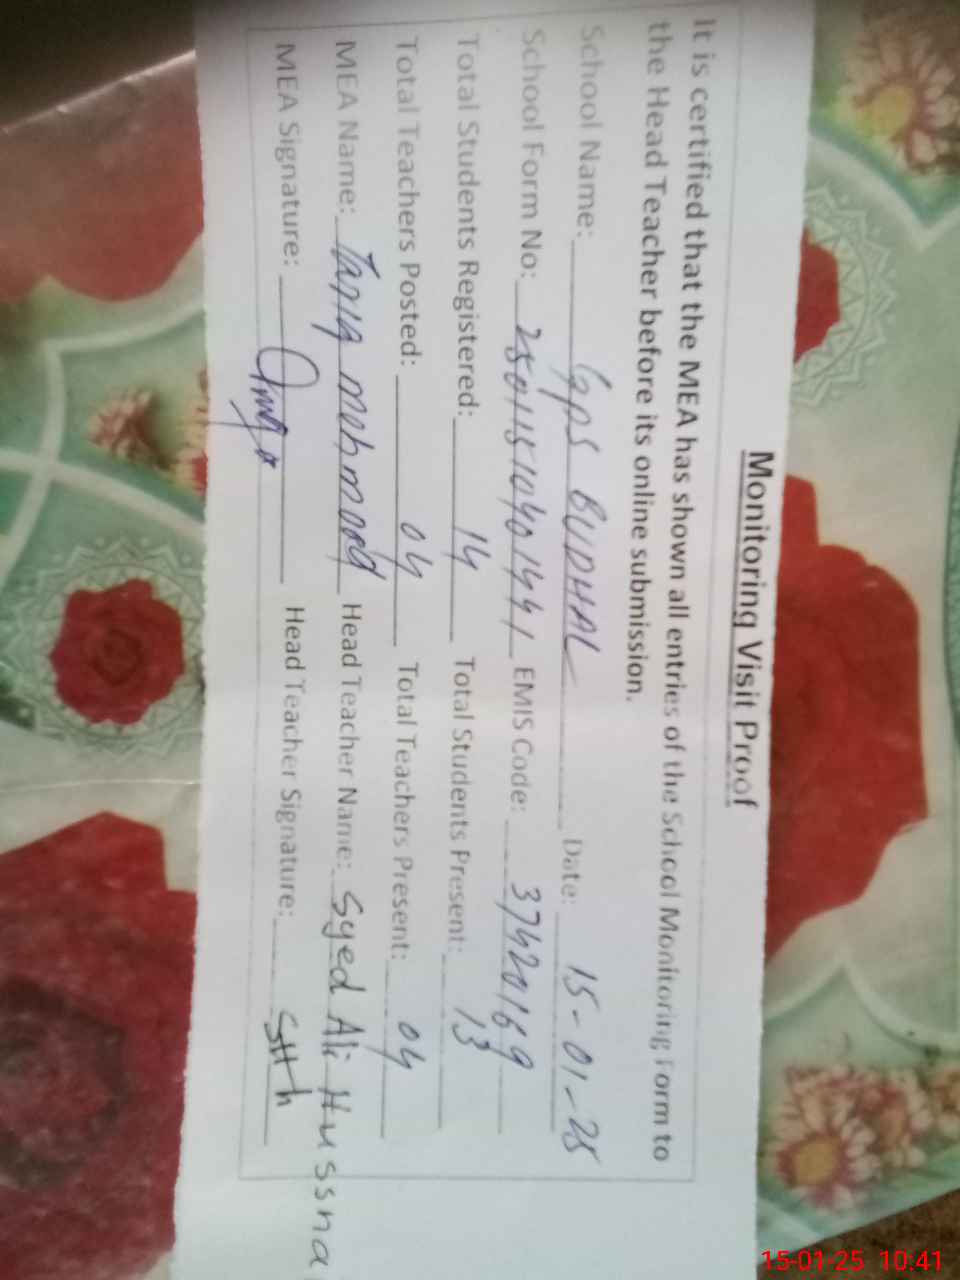 Monitoring Visit Proof
It is certified that the MEA has shown all entries of the School Monitoring Form to
the Head Teacher before its online submission.
School Name: GPS BUDHAL Date: 15-01-25
School Form No: 25011510401441 EMIS Code: 37420169
Total Students Registered: 14 Total Students Present: 13
Total Teachers Posted: 04 Total Teachers Present: 04
MEA Name: Tania mehmood Head Teacher Name: Syed Ali Hussna
MEA Signature: Head Teacher Signature:
15-01-25 10:41